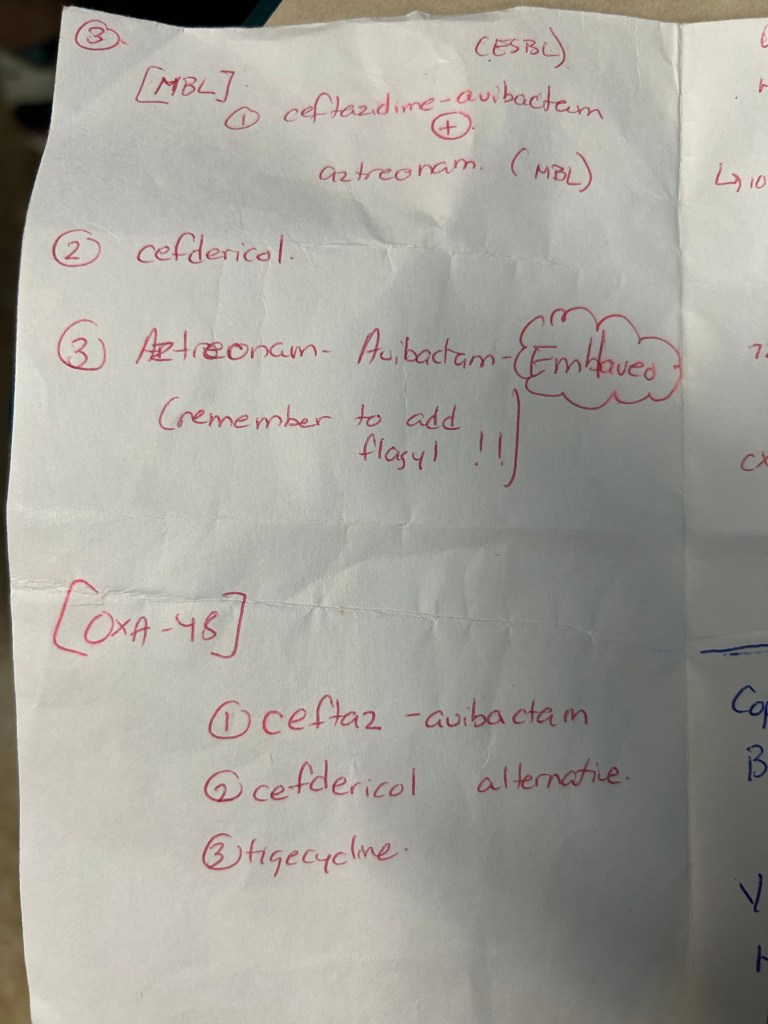 ③.
(ESBL)
[MBL].
① ceftazidime-avibactam
⊕.
aztreonam. (MBL)
② cefdericol.
③ Aztreonam- Avibactam- Emblaveo
(remember to add
flagyl !!)
[OXA-48]
① ceftaz -avibactam
② cefdericol alternative.
③ tigecycline.
↳ 10